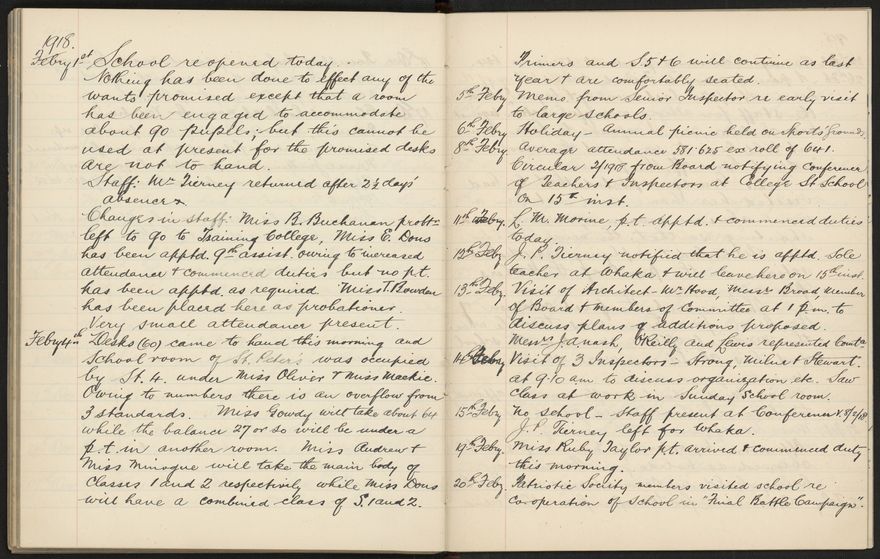 1918.
Febry 1st School reopened today.
Nothing has been done to effect any of the
wants promised except that a room
has been engaged to accommodate
about 90 pupils; but this cannot be
used at present for the promised desks
are not to hand.
Staff: Mr Tierney returned after 2½ days'
absence
Changes in staff: Miss B. Buchanan probtr
left to go to Training College, Miss E. Dons
has been apptd. 9th assist. owing to increased
attendance & commenced duties but no p.t.
has been apptd. as required. Miss T. Bowden
has been placed here as probationer.
Very small attendance present.
Febry 4th Desks (60) came to hand this morning and
School room of St. Peter's was occupied
by St. 4. under Miss Oliver & Miss Mackie.
Owing to numbers there is an overflow from
3 standards. Miss Gowdy will take about 64
while the balance 27 or so will be under a
p.t. in another room. Miss Andrew &
Miss Minogue will take the main body of
Classes 1 and 2 respectively while Miss Dons
will have a combined class of S. 1 and 2.
Primers and S. 5 & 6 will continue as last
year & are comfortably seated.
5th Febry Memo from Senior Inspector re early visit
to large schools.
6th Febry Holiday - Annual picnic held on sports grounds.
8th Febry. Average attendance 581.625 ex roll of 641.
Circular 2/1918 from Board notifying conference
of Teachers & Inspectors at College St School
on 15th inst.
11th Feby. L. M. Morine, p.t. apptd. & commenced duties
today.
12th Feby J. P. Tierney notified that he is apptd. Sole
teacher at Whaka & will leave here on 15th inst.
13th Feby. Visit of Architect Mr Hood, Messrs Broad, member
of Board & members of Committee at 1 p.m. to
discuss plans of additions proposed.
Messrs Janash, O'Reilly and Lewis represented Comtee
14th Feby Visit of 3 Inspectors - Strong, Milne & Stewart.
at 9.10 am to discuss organization etc. Saw
class at work in Sunday School room.
15th Feby No school - Staff present at Conference
J. P. Tierney left for Whaka.
19th Feby. Miss Ruby Taylor p.t. arrived & commenced duty
this morning.
20th Feby Patriotic Society members visited school re
co-operation of School in "Final Battle Campaign".